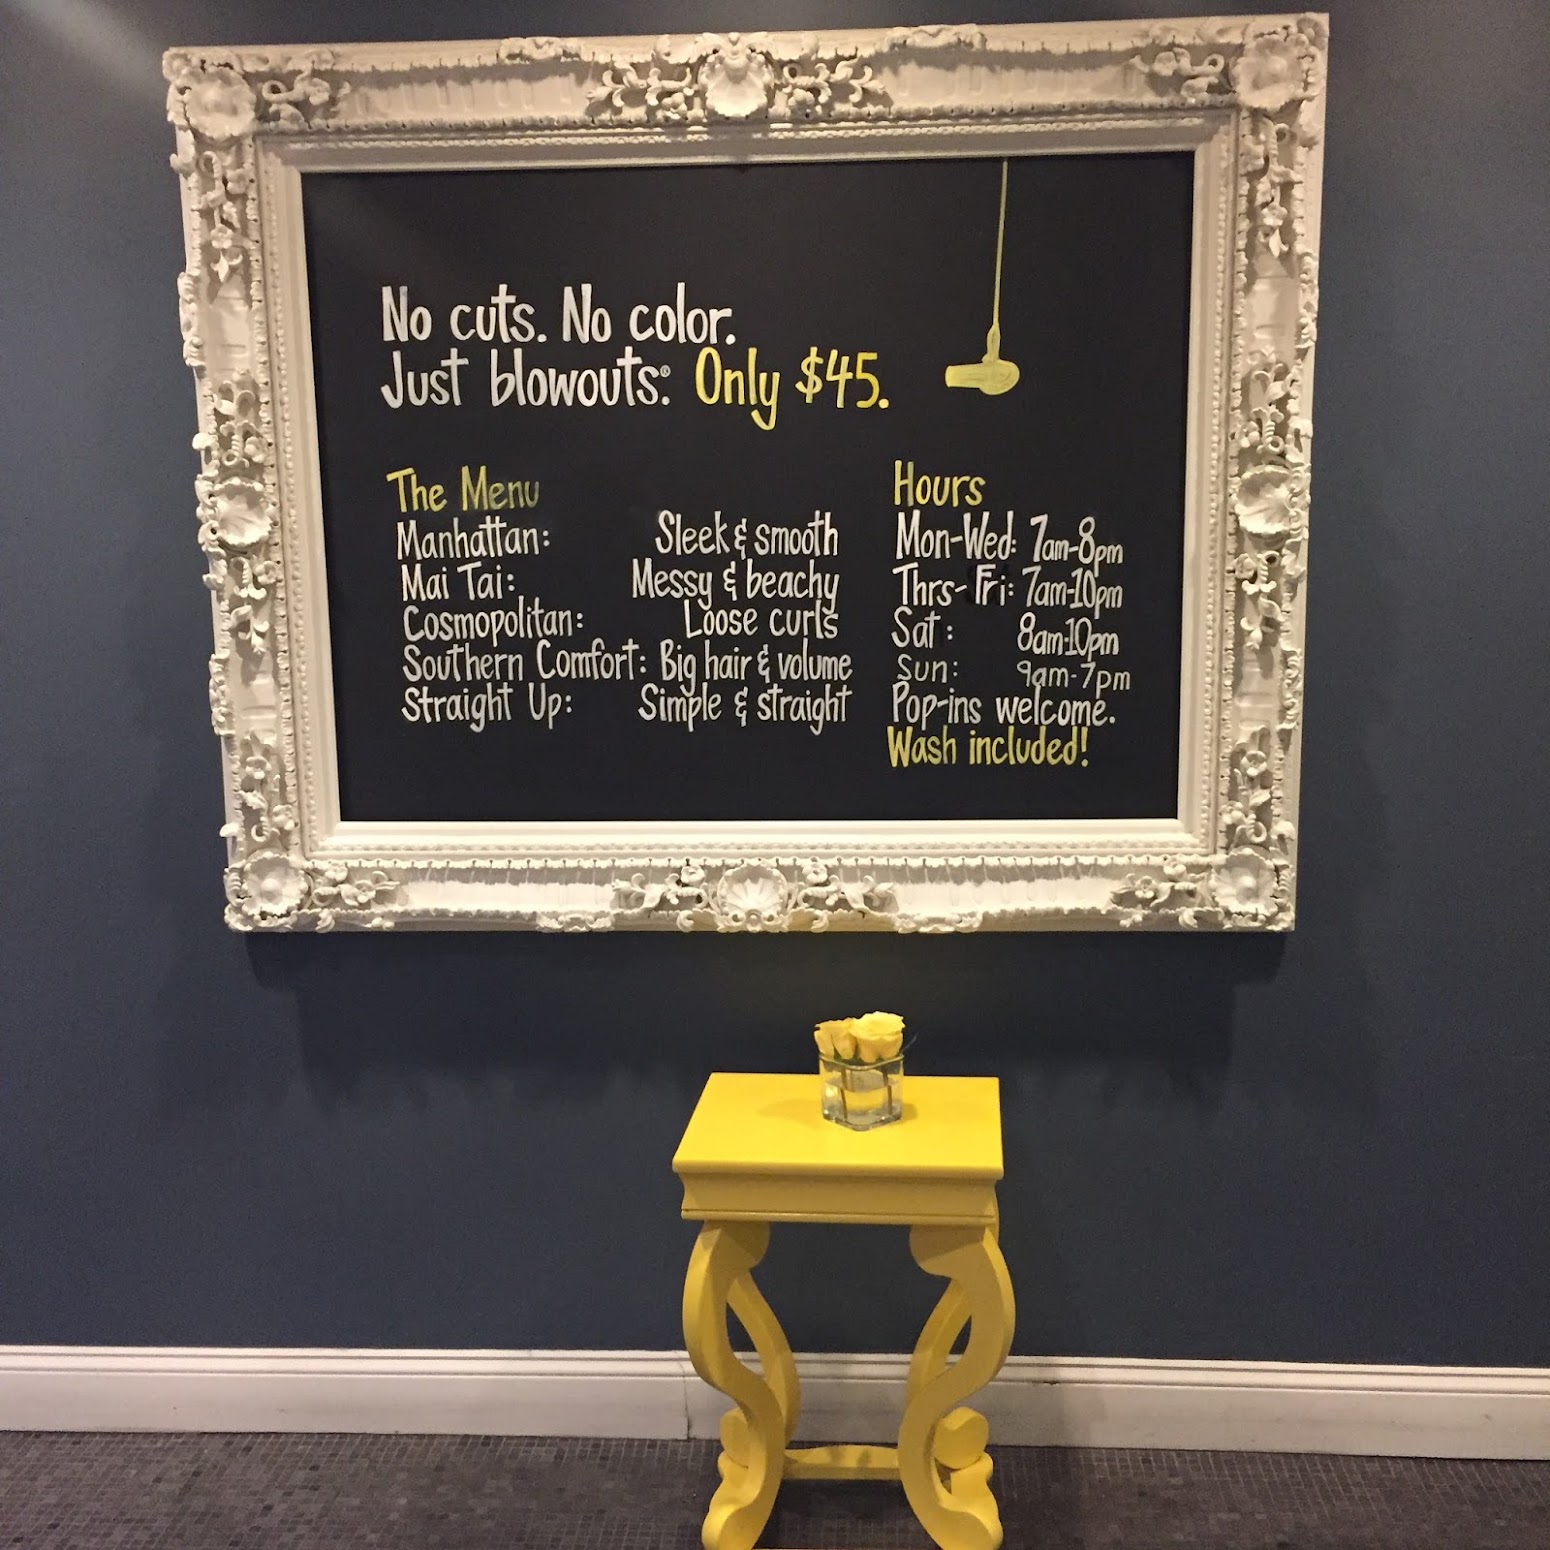 No cuts. No color.
Just blowouts.® Only $45.
The Menu
Manhattan: Sleek & smooth
Mai Tai: Messy & beachy
Cosmopolitan: Loose curls
Southern Comfort: Big hair & volume
Straight Up: Simple & straight
Hours
Mon-Wed: 7am-8pm
Thrs-Fri: 7am-10pm
Sat: 8am-10pm
Sun: 9am-7pm
Pop-ins welcome.
Wash included!